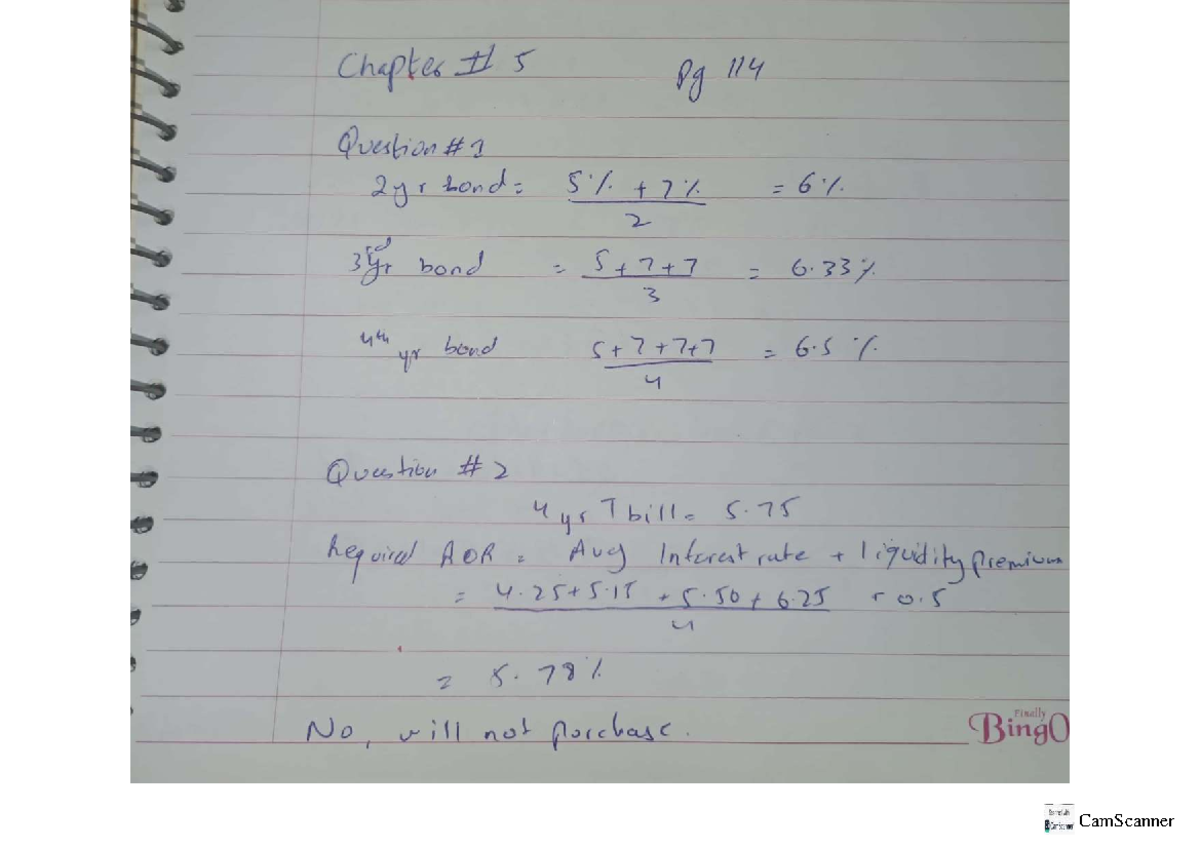 Chapter # 5 Pg 114
Question # 1
2 yr bond = 5% + 7% = 6%
2
3rd yr bond = 5 + 7 + 7 = 6.33%
3
4th yr bond 5 + 7 + 7 + 7 = 6.5 %
4
Question # 2
4 yrs T bill = 5.75
Required ROR = Avg Interest rate + liquidity premium
= 4.25 + 5.15 + 5.50 + 6.25 + 0.5
4
= 5.78%
No, will not purchase.
Finally
BingO
CamScanner